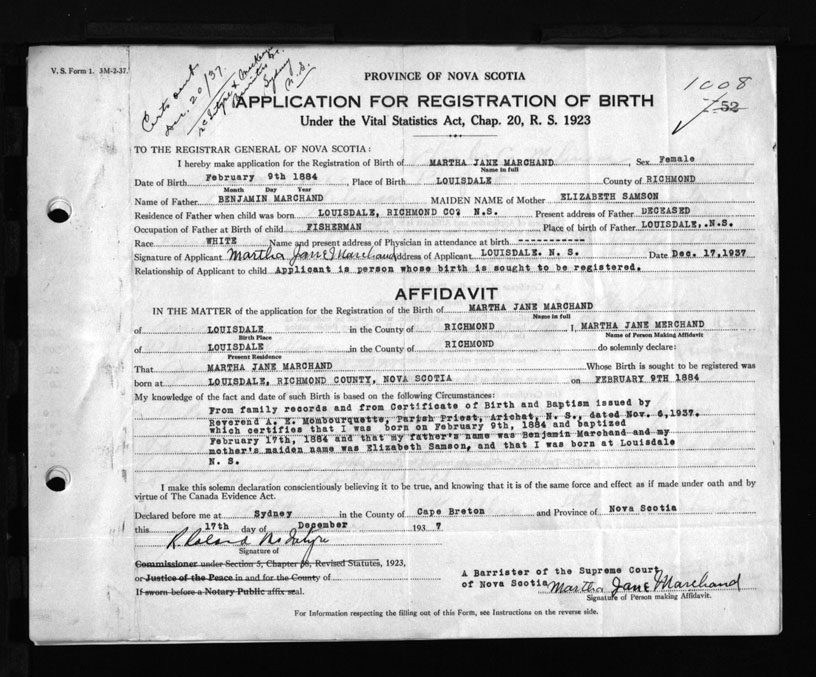 V. S. Form 1. 3M-2-37.
Certs out
Dec. 20/37.
McIntyre & Mackenzie
Barristers &c.
Sydney
N. S.
1008
752
PROVINCE OF NOVA SCOTIA
APPLICATION FOR REGISTRATION OF BIRTH
Under the Vital Statistics Act, Chap. 20, R. S. 1923
TO THE REGISTRAR GENERAL OF NOVA SCOTIA:
I hereby make application for the Registration of Birth of MARTHA JANE MARCHAND, Sex Female
Name in full
Date of Birth February 9th 1884, Place of Birth LOUISDALE County of RICHMOND
Month Day Year
Name of Father BENJAMIN MARCHAND MAIDEN NAME of Mother ELIZABETH SAMSON
Residence of Father when child was born LOUISDALE, RICHMOND CO? N.S. Present address of Father DECEASED
Occupation of Father at Birth of child FISHERMAN Place of birth of Father LOUISDALE,.N.S.
Race WHITE Name and present address of Physician in attendance at birth -----------
Signature of Applicant Martha Jane Marchand Address of Applicant LOUISDALE. N. S. Date Dec. 17,1937
Relationship of Applicant to child Applicant is person whose birth is sought to be registered.
AFFIDAVIT
IN THE MATTER of the application for the Registration of the Birth of MARTHA JANE MARCHAND
Name in full
of LOUISDALE in the County of RICHMOND I, MARTHA JANE MERCHAND
Birth Place Name of Person Making Affidavit
of LOUISDALE in the County of RICHMOND do solemnly declare:
Present Residence
That MARTHA JANE MARCHAND Whose Birth is sought to be registered was
born at LOUISDALE, RICHMOND COUNTY, NOVA SCOTIA on FEBRUARY 9TH 1884
My knowledge of the fact and date of such Birth is based on the following Circumstances:
From family records and from Certificate of Birth and Baptism issued by
Reverend A. E. Mombourquette, Parish Priest, Arichat, N. S., dated Nov. 6,1937.
which certifies that I was born on February 9th, 1884 and baptized
February 17th, 1884 and that my father's name was Benjamin Marchand and my
mother's maiden name was Elizabeth Samson, and that I was born at Louisdale
N. S.
I make this solemn declaration conscientiously believing it to be true, and knowing that it is of the same force and effect as if made under oath and by
virtue of The Canada Evidence Act.
Declared before me at Sydney in the County of Cape Breton and Province of Nova Scotia
this 17th day of December 1937
R. Roland McIntyre
Signature of
Commissioner under Section 5, Chapter 36, Revised Statutes, 1923,
or Justice of the Peace in and for the County of
If sworn before a Notary Public affix seal.
A Barrister of the Supreme Court
of Nova Scotia
Martha Jane Marchand
Signature of Person making Affidavit.
For Information respecting the filling out of this Form, see Instructions on the reverse side.